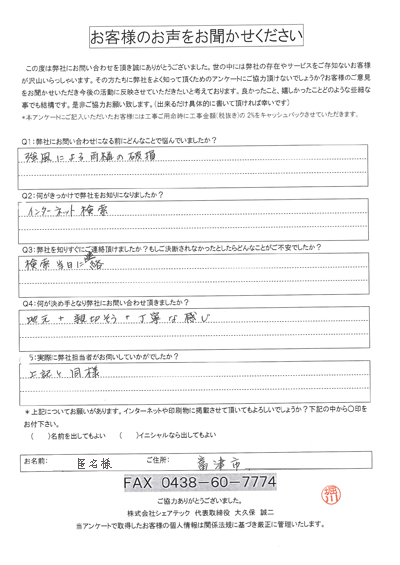 お客様のお声をお聞かせください
この度は弊社にお問い合わせを頂き誠にありがとうございました。世の中には弊社の存在やサービスをご存知ないお客様
が沢山いらっしゃいます。その方たちに弊社をよく知って頂くためのアンケートにご協力頂けないでしょうか?お客様のご意見
をお聞かせいただき今後の活動に反映させていただきたいと考えております。良かったこと、嬉しかったことどのような些細な
事でも結構です。是非ご協力お願い致します。(出来るだけ具体的に書いて頂ければ幸いです)
*本アンケートにご記入いただいたお客様には工事ご用命時に工事金額(税抜き)の2%をキャッシュバックさせていただきます。
Q1:弊社にお問い合わせになる前にどんなことで悩んでいましたか?
強風による雨樋の破損
Q2:何がきっかけで弊社をお知りになりましたか?
インターネット検索
Q3:弊社を知りすぐにご連絡頂けましたか?もしご決断されなかったとしたらどんなことがご不安でしたか?
検索当日に連絡
Q4:何が決め手となり弊社にお問い合わせ頂きましたか?
地元+親切そう+丁寧な感じ
5:実際に弊社担当者がお伺いしていかがでしたか?
上記と同様
*上記についてお願いがあります。インターネットや印刷物に掲載させて頂いてもよろしいでしょうか?下記の中から〇印を
お付下さい。
( )名前を出してもよい ( )イニシャルなら出してもよい
お名前: 匿名様 ご住所: 富津市
FAX 0438-60-7774
ご協力ありがとうございました。
株式会社シェアテック 代表取締役 大久保 誠二
当アンケートで取得したお客様の個人情報は関係法規に基づき厳正に管理いたします。